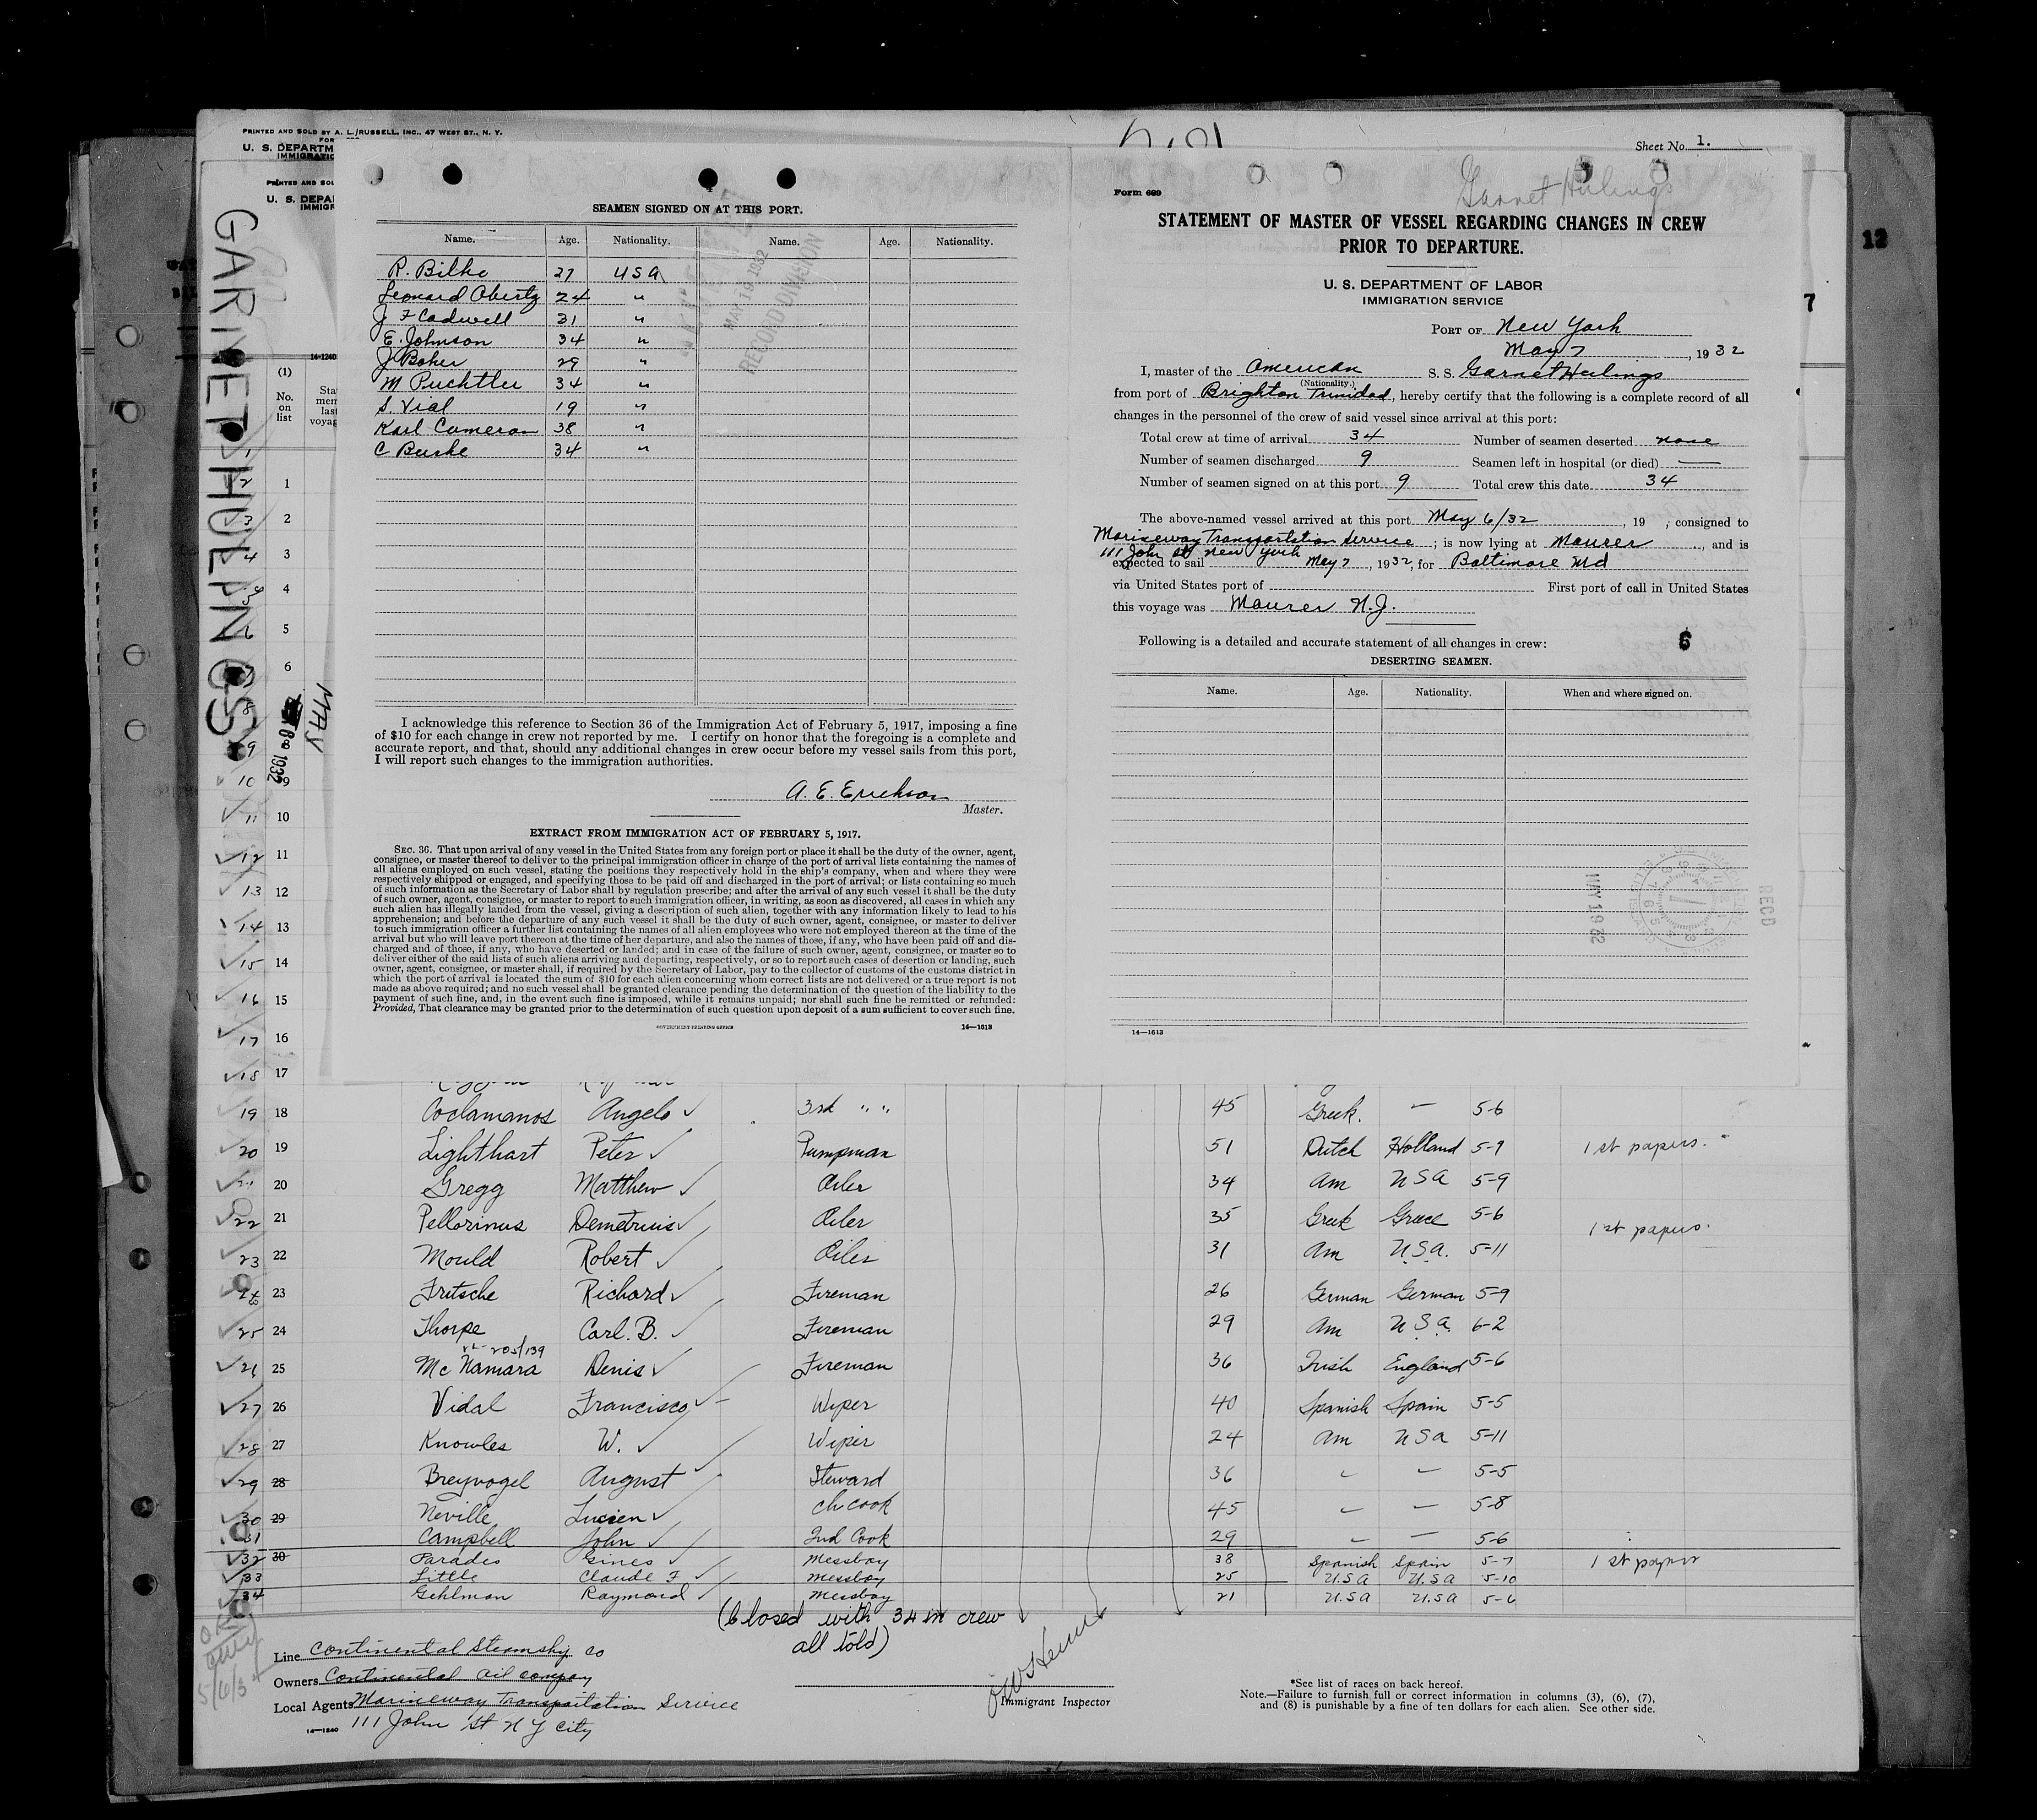 PRINTED AND SOLD BY A. L. RUSSELL, INC., 47 WEST ST., N. Y.
FOR
U. S. DEPARTM
IMMIGRATIO
PRINTED AND SOL
U. S. DEPA
IMMIGR
GARNET HULINGS
14-1240
(1)
No.
on
list
Sta
men
last
voyag
MAY
1932
SEAMEN SIGNED ON AT THIS PORT.
Name. Age. Nationality. Name. Age. Nationality.
R. Bilke 27 USA
Leonard Obertz 24 "
J F Cadwell 31 "
E. Johnson 34 "
J Baker 29 "
M Puchtler 34 "
S. Vial 19 "
Karl Cameron 38 "
C Burke 34 "
MAY 19 1932
RECORD DIVISION
I acknowledge this reference to Section 36 of the Immigration Act of February 5, 1917, imposing a fine
of $10 for each change in crew not reported by me. I certify on honor that the foregoing is a complete and
accurate report, and that, should any additional changes in crew occur before my vessel sails from this port,
I will report such changes to the immigration authorities.
A. E. Erickson
Master.
EXTRACT FROM IMMIGRATION ACT OF FEBRUARY 5, 1917.
SEC. 36. That upon arrival of any vessel in the United States from any foreign port or place it shall be the duty of the owner, agent,
consignee, or master thereof to deliver to the principal immigration officer in charge of the port of arrival lists containing the names of
all aliens employed on such vessel, stating the positions they respectively hold in the ship's company, when and where they were
respectively shipped or engaged, and specifying those to be paid off and discharged in the port of arrival; or lists containing so much
of such information as the Secretary of Labor shall by regulation prescribe; and after the arrival of any such vessel it shall be the duty
of such owner, agent, consignee, or master to report to such immigration officer, in writing, as soon as discovered, all cases in which any
such alien has illegally landed from the vessel, giving a description of such alien, together with any information likely to lead to his
apprehension; and before the departure of any such vessel it shall be the duty of such owner, agent, consignee, or master to deliver
to such immigration officer a further list containing the names of all alien employees who were not employed thereon at the time of the
arrival but who will leave port thereon at the time of her departure, and also the names of those, if any, who have been paid off and dis-
charged and of those, if any, who have deserted or landed; and in case of the failure of such owner, agent, consignee, or master so to
deliver either of the said lists of such aliens arriving and departing, respectively, or so to report such cases of desertion or landing, such
owner, agent, consignee, or master shall, if required by the Secretary of Labor, pay to the collector of customs of the customs district in
which the port of arrival is located the sum of $10 for each alien concerning whom correct lists are not delivered or a true report is not
made as above required; and no such vessel shall be granted clearance pending the determination of the question of the liability to the
payment of such fine, and, in the event such fine is imposed, while it remains unpaid; nor shall such fine be remitted or refunded:
Provided, That clearance may be granted prior to the determination of such question upon deposit of a sum sufficient to cover such fine.
GOVERNMENT PRINTING OFFICE 14—1613
Sheet No. 1.
Form 689
Garnet Hulings
STATEMENT OF MASTER OF VESSEL REGARDING CHANGES IN CREW
PRIOR TO DEPARTURE.
U. S. DEPARTMENT OF LABOR
IMMIGRATION SERVICE
PORT OF New York
May 7, 1932
I, master of the American S. S. Garnet Hulings
(Nationality.)
from port of Brighton Trinidad, hereby certify that the following is a complete record of all
changes in the personnel of the crew of said vessel since arrival at this port:
Total crew at time of arrival 34 Number of seamen deserted none
Number of seamen discharged 9 Seamen left in hospital (or died) —
Number of seamen signed on at this port 9 Total crew this date 34
The above-named vessel arrived at this port May 6/32, 19 , consigned to
Marineway Transportation Service; is now lying at Maurer, and is
111 John St New York
expected to sail May 7, 1932, for Baltimore Md
via United States port of First port of call in United States
this voyage was Maurer N.J.
Following is a detailed and accurate statement of all changes in crew:
6
DESERTING SEAMEN.
Name. Age. Nationality. When and where signed on.
MAY 19 32
RECD
14—1613
12
7
1
2
3
4
5
6
9
10
11
12
13
14
15
16
17
19 18 Coclamanos Angelo 3rd " " 45 Greek. — 5-6
20 19 Lighthart Peter Pumpman 51 Dutch Holland 5-9 1st papers.
20 Gregg Matthew Oiler 34 Am USA 5-9
22 21 Pellorinus Demetruis Oiler 35 Greek Greece 5-6 1st papers.
23 22 Mould Robert Oiler 31 Am U.S.A. 5-11
24 23 Fritsche Richard Fireman 26 German German 5-9
25 24 Thorpe Carl. B. Fireman 29 Am U.S.A. 6-2
205/139
26 25 McNamara Denis Fireman 36 Irish England 5-6
27 26 Vidal Francisco Wiper 40 Spanish Spain 5-5
28 27 Knowles W. Wiper 24 Am USA 5-11
29 28 Breyvogel August Steward 36 " — 5-5
30 29 Neville Lucien Ch Cook 45 — — 5-8
31 Campbell John 2nd Cook 29 — — 5-6
32 30 Parades Gines Messboy 38 Spanish Spain 5-7 1st paper
33 Little Claude F Messboy 25 U.S.A U.S.A 5-10
34 Gehlman Raymond Messboy 21 U.S.A U.S.A 5-6
(Closed with 34 in crew
all told)
Line Continental Steamship Co
Owners Continental Oil Company
Local Agents Marineway Transportation Service
14—1240 111 John St N Y City
Immigrant Inspector
*See list of races on back hereof.
Note.—Failure to furnish full or correct information in columns (3), (6), (7),
and (8) is punishable by a fine of ten dollars for each alien. See other side.